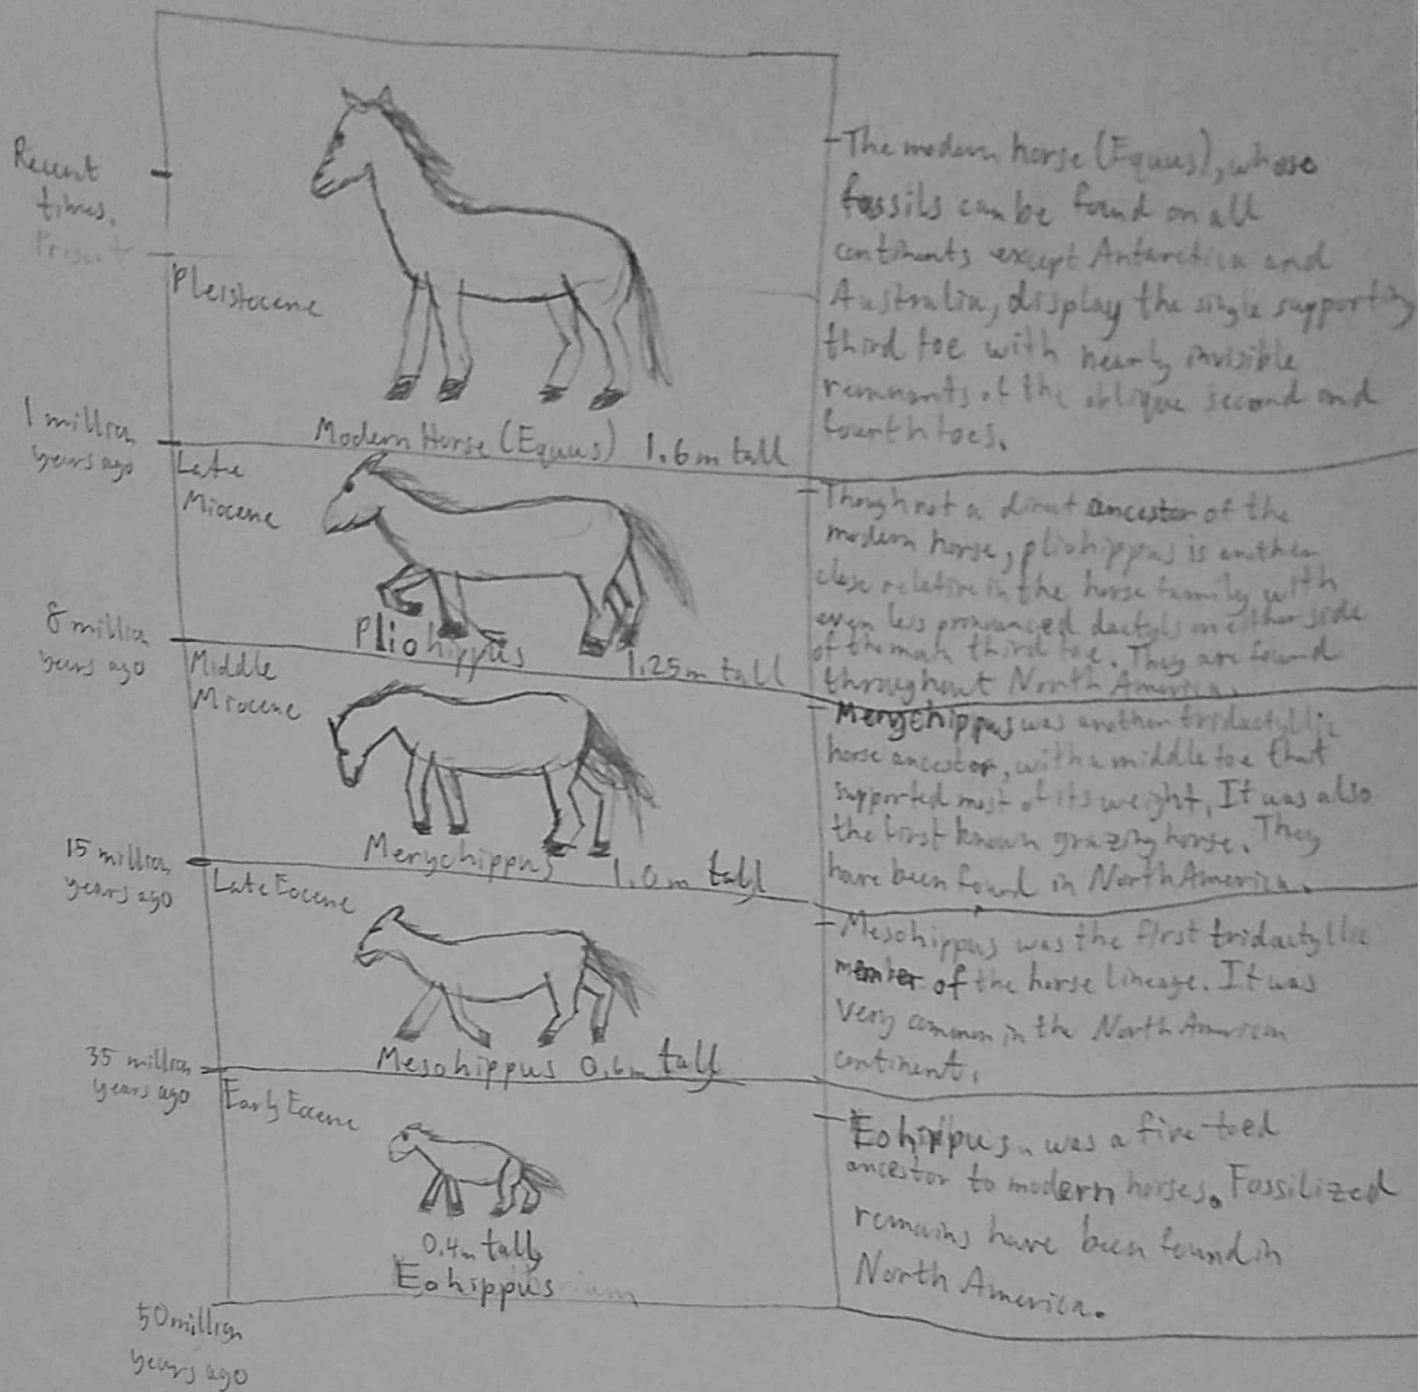 Recent
times.
Present
Pleistocene
The modern horse (Equus), whose
fossils can be found on all
continents except Antarctica and
Australia, display the single supporting
third toe with nearly invisible
remnants of the oblique second and
fourth toes.
Modern Horse (Equus) 1.6m tall
1 million
years ago
Late
Miocene
Though not a direct ancestor of the
modern horse, pliohippus is another
close relative in the horse family with
even less pronounced dactyls on either side
of the main third toe. They are found
throughout North America.
Pliohippus
1.25m tall
8 million
years ago
Middle
Miocene
Merychippus was another tridactyllic
horse ancestor, with a middle toe that
supported most of its weight. It was also
the first known grazing horse. They
have been found in North America.
Merychippus 1.0m tall
15 million
years ago
Late Eocene
Mesohippus was the first tridactyllic
member of the horse lineage. It was
very common in the North American
continent.
Mesohippus 0.6m tall
35 million
years ago
Early Eocene
Eohippus was a five toed
ancestor to modern horses. Fossilized
remains have been found in
North America.
0.4m tall
Eohippus
50 million
years ago